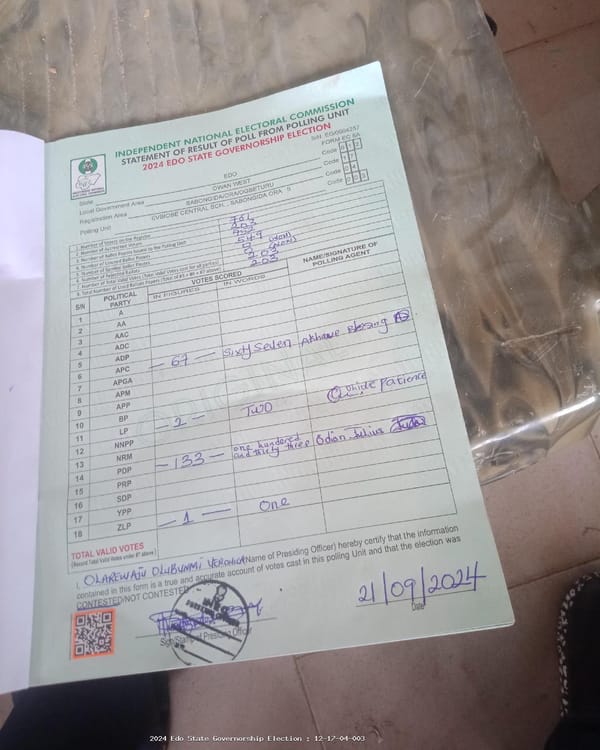 INDEPENDENT NATIONAL ELECTORAL COMMISSION
STATEMENT OF RESULT OF POLL FROM POLLING UNIT
2024 EDO STATE GOVERNORSHIP ELECTION
S/N: EG/0004257
FORM EC 8A
State EDO Code 1 2
Local Government Area OWAN WEST Code 1 7
Registration Area SABONGIDA/ORA/OGBETURU Code 0 4
Polling Unit Code 0 0 3
1. Number of Voters on the Register
2. Number of Accredited Voters 203
3. Number of Ballot Papers Issued to the Polling Unit
4. Number of Unused Ballot Papers 549
5. Number of Spoiled Ballot Papers 0
6. Number of Rejected Ballots 0
7. Number of Total Valid Votes (Total Valid Votes cast for all parties) 203
8. Total Number of Used Ballot Papers (Total of #5 + #6 + #7 above) 203
S/N POLITICAL PARTY VOTES SCORED NAME/SIGNATURE OF POLLING AGENT
IN FIGURES IN WORDS
1 A
2 AA
3 AAC
4 ADC
5 ADP
6 APC - 67 - Sixty Seven Akhane Blessing
7 APGA
8 APM
9 APP
10 BP
11 LP - 2 - Two Patience
12 NNPP
13 NRM
14 PDP - 133 - one hundred and thirty three Odion Julius
15 PRP
16 SDP
17 YPP - 1 - One
18 ZLP
TOTAL VALID VOTES
(Record Total Valid Votes under #7 above)
I, OLAREWAJU OLUBUNMI VERONICA (Name of Presiding Officer) hereby certify that the information
contained in this form is a true and accurate account of votes cast in this polling Unit and that the election was
CONTESTED/NOT CONTESTED
Sign/Stamp of Presiding Officer
21/09/2024
Date
2024 Edo State Governorship Election : 12-17-04-003